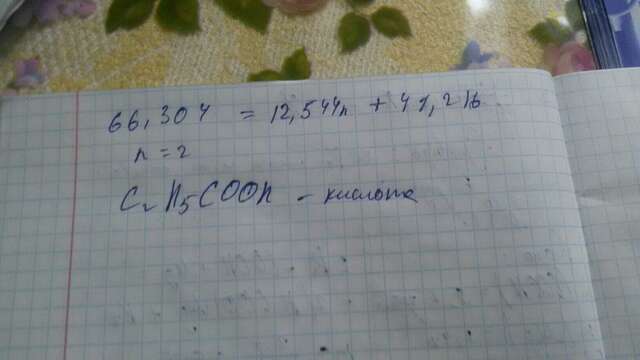 66,304 = 12,544n + 41,216
n = 2
C₂H₅COOH - кислота